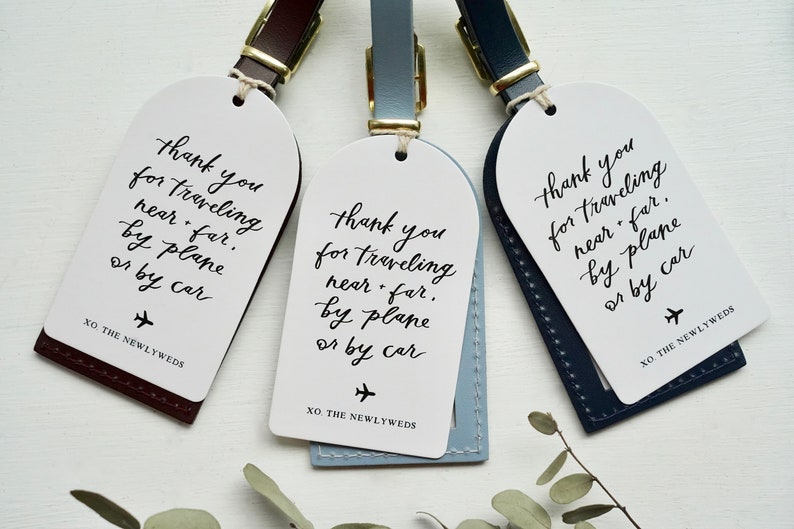 thank you
for traveling
near + far,
by plane
or by car
XO, THE NEWLYWEDS
thank you
for traveling
near + far,
by plane
or by car
XO, THE NEWLYWEDS
thank you
for traveling
near + far,
by plane
or by car
XO, THE NEWLYWEDS